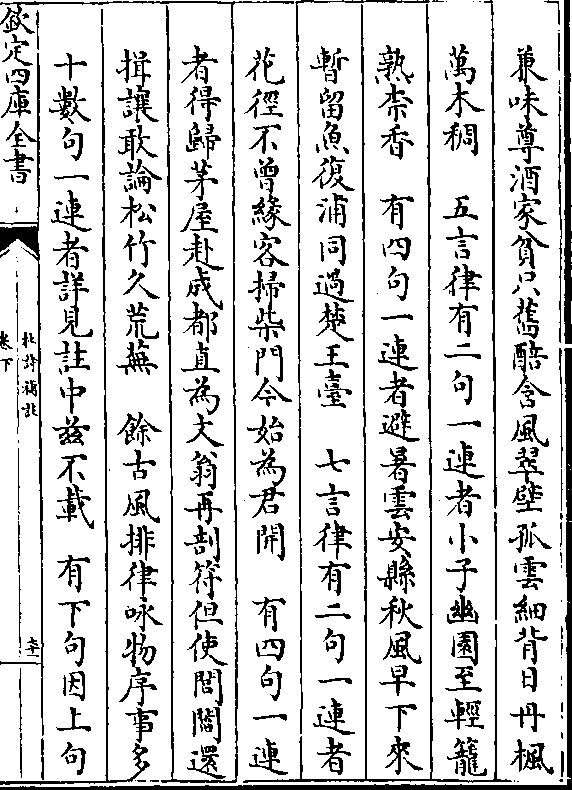 兼味尊酒家貧只舊醅含風翠壁孤雲細背日丹楓
萬木稠　五言律有二句一連者小子幽園至輕籠
熟柰香　有四句一連者避暑雲安縣秋風早下來
暫留魚復浦同過楚王臺　七言律有二句一連者
花徑不曾緣客掃柴門今始為君開　有四句一連
者得歸茅屋赴成都直為文翁再剖符但使閭閻還
揖讓敢論松竹久荒蕪　餘古風排律咏物序事多
十數句一連者詳見註中兹不載　有下句因上句
欽定四庫全書
杜詩攟
卷下